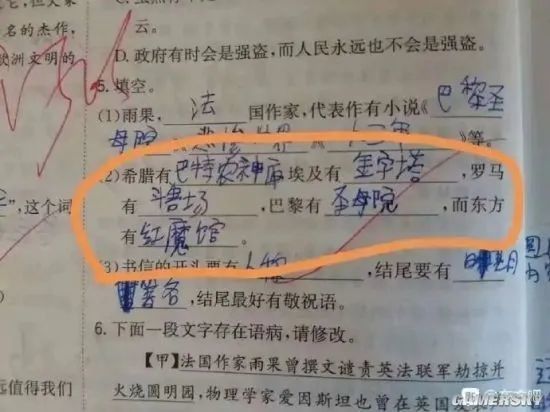 名的杰作,
云。
欧洲文明的
D. 政府有时会是强盗,而人民永远也不会是强盗。
5. 填空。
(1)雨果, 法 国作家,代表作有小说《巴黎圣
母院 悲惨世界 九三年 》等。
(2)希腊有巴特农神庙埃及有 金字塔 ,罗马
”,这个词
有 斗兽场 ,巴黎有 圣母院 ,而东方
有红魔馆。
(3)书信的开头要有 ,结尾要有
署名 ,结尾最好有敬祝语。
6. 下面一段文字存在语病,请修改。
【甲】法国作家雨果曾撰文谴责英法联军劫掠并
远值得我们
火烧圆明园,物理学家爱因斯坦也曾在英国
GAMERSKY